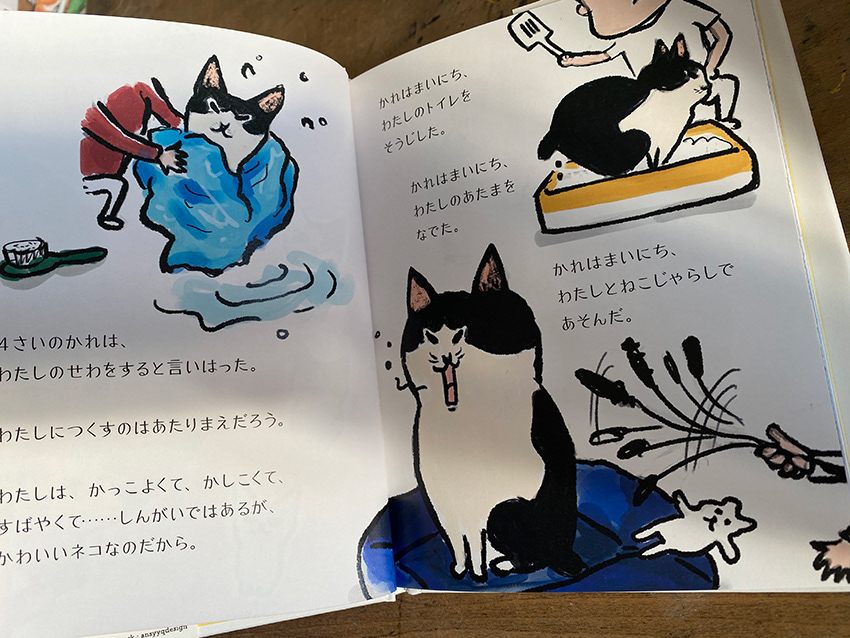 4さいのかれは、
わたしのせわをすると言いはった。
わたしにつくすのはあたりまえだろう。
わたしは、かっこよくて、かしこくて、
すばやくて……しんがいではあるが、
かわいいネコなのだから。
かれはまいにち、
わたしのトイレを
そうじした。
かれはまいにち、
わたしのあたまを
なでた。
かれはまいにち、
わたしとねこじゃらしで
あそんだ。
ansyyqdesign